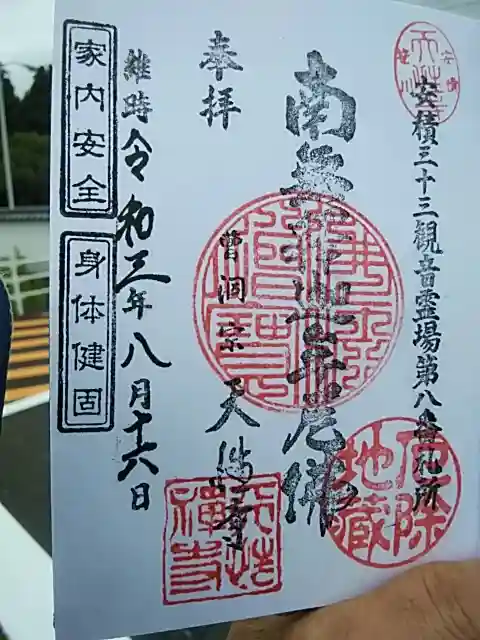 安積
笹川
安積三十三観音霊場第八番札所
南無釈迦牟尼佛
奉拝
曹洞宗
天性寺
維時令和三年八月十六日
家内安全
身体健固
厄除
地蔵